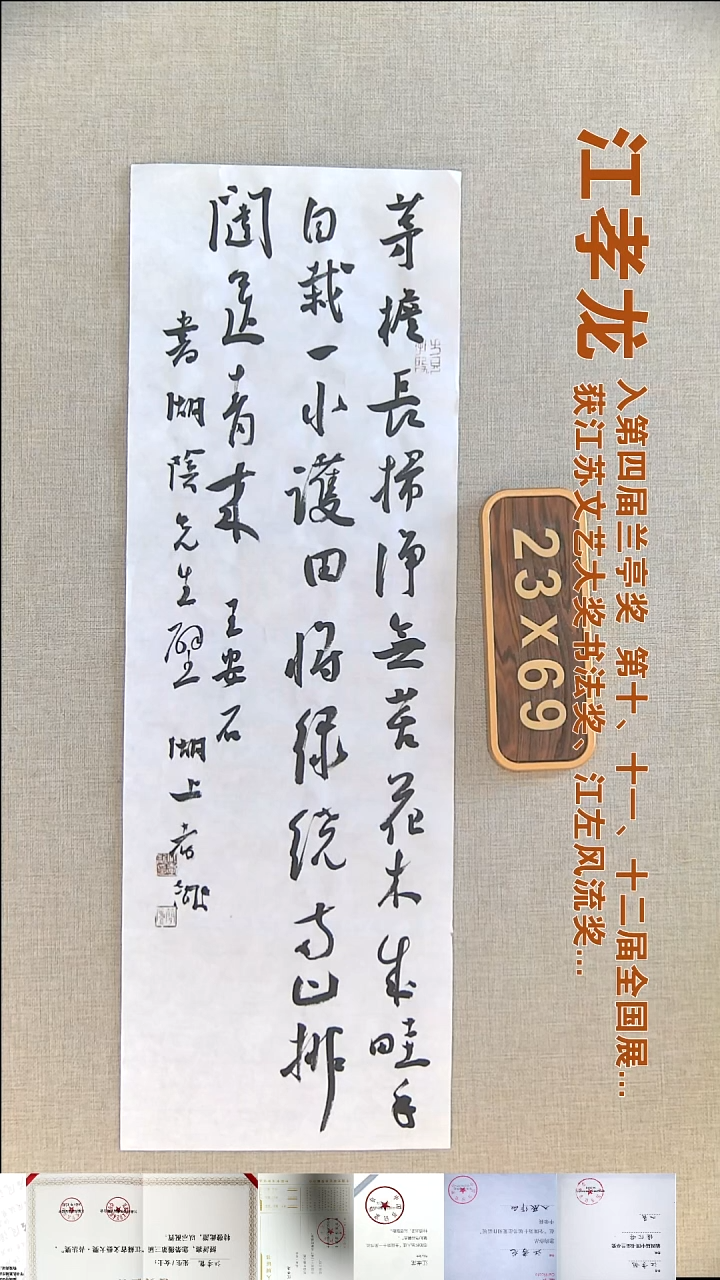 江孝龙
入第四届兰亭奖 第十、十一、十二届全国展...
获江苏文艺大奖书法奖、江左风流奖...
23x69
茅檐長掃淨無苔花木成畦手
自栽一水護田將綠繞兩山排
闥送青来 王安石
書湖陰先生壁 湖上孝龍